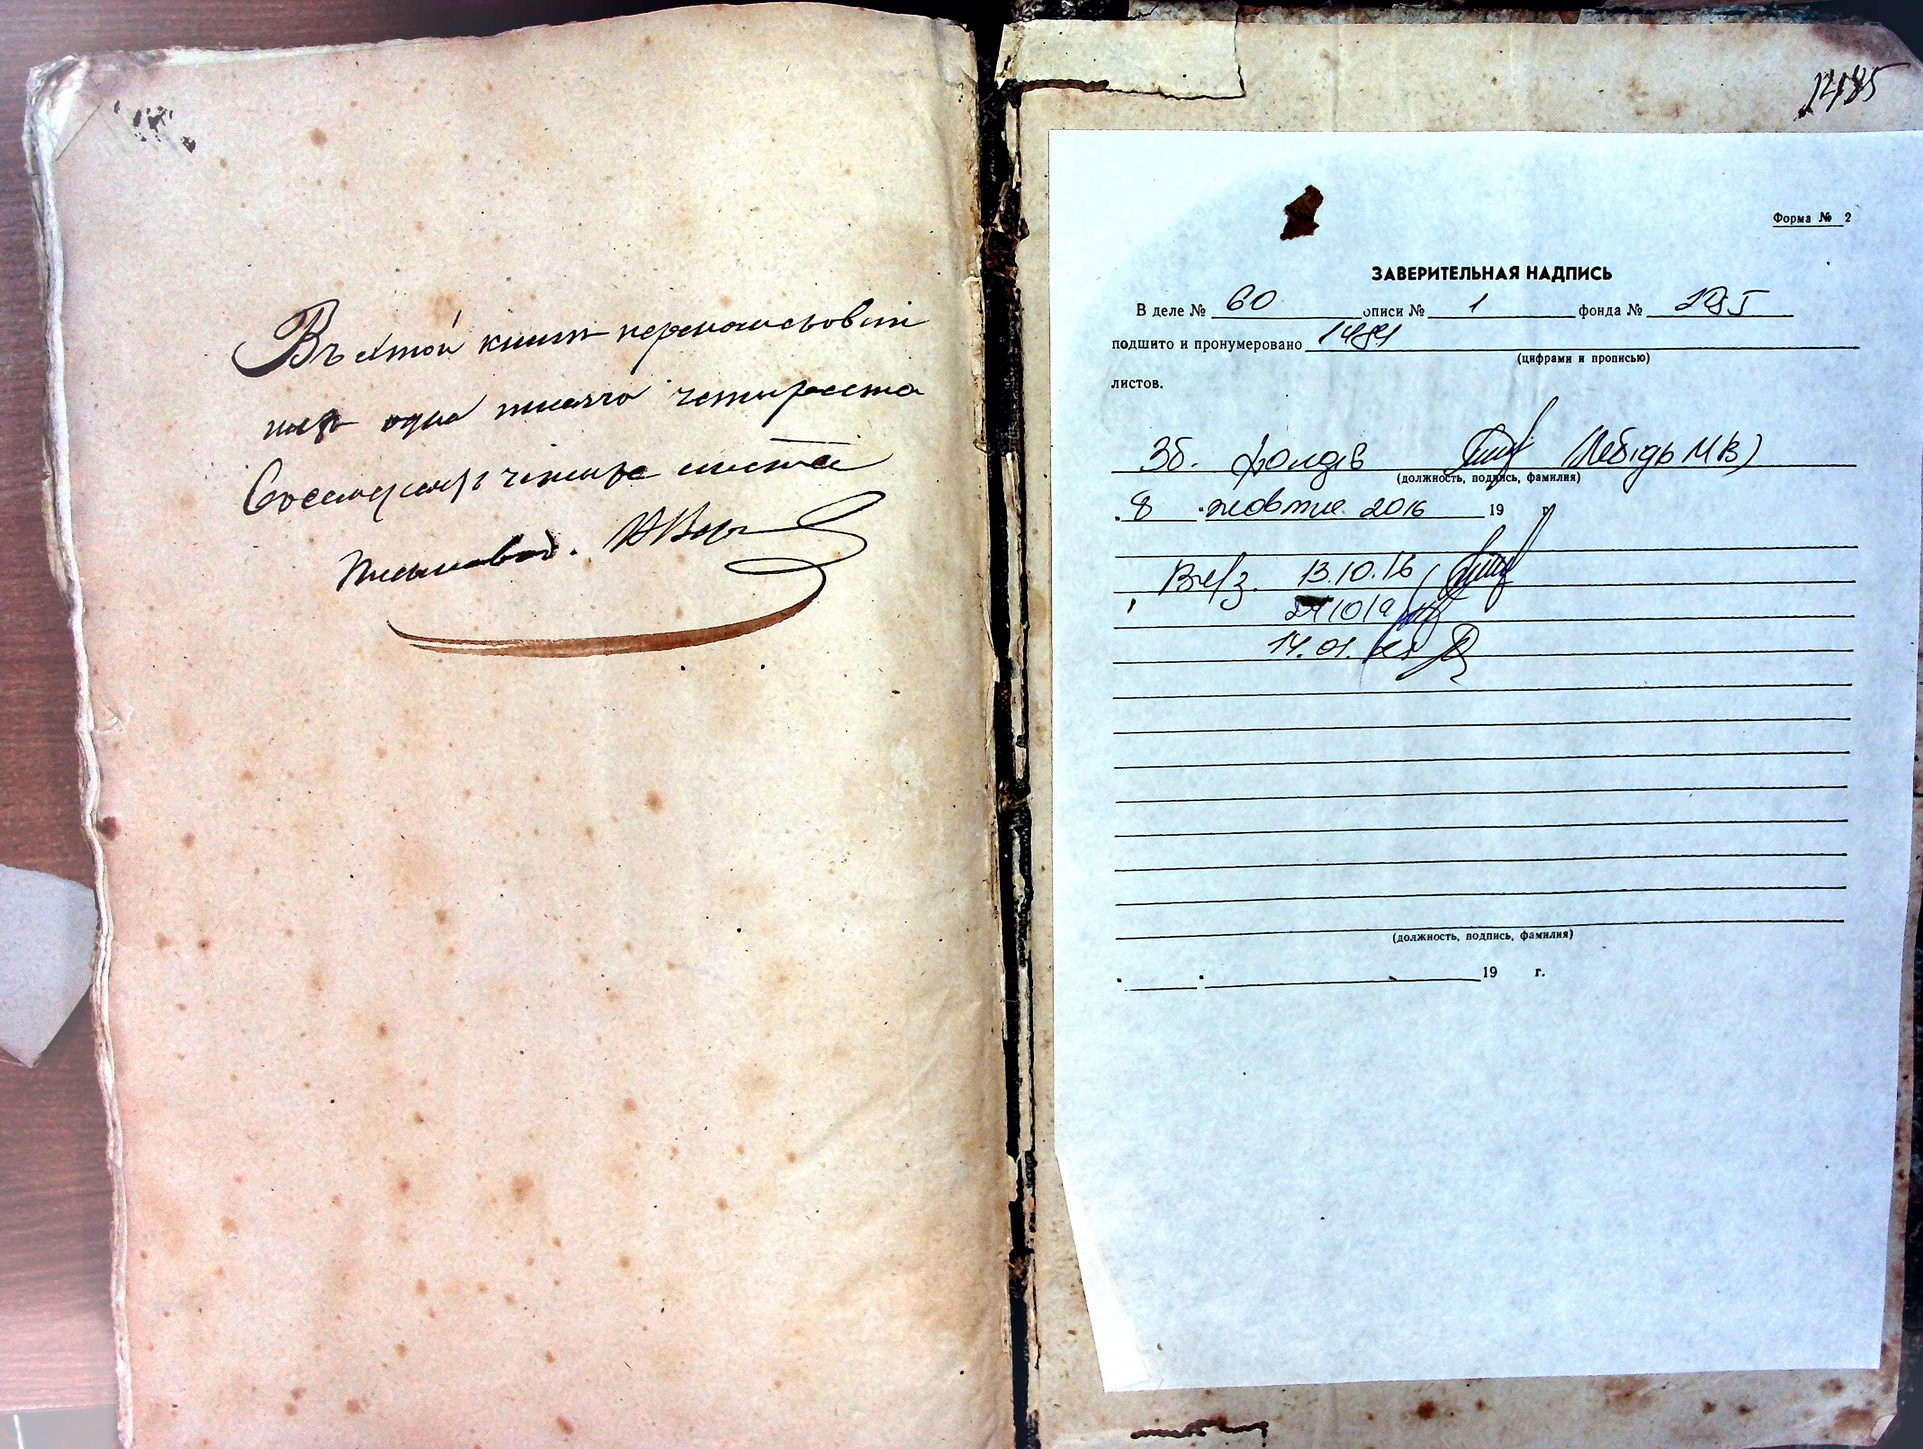 Въ этой книге перенумерован
ных одна тысяча четыреста
Восемдесят четыре листа
Письмовод.
1485
Форма № 2
ЗАВЕРИТЕЛЬНАЯ НАДПИСЬ
В деле № 60 описи № 1 фонда №
подшито и пронумеровано
(цифрами и прописью)
листов.
Зб. фондів Лебідь М В)
(должность, подпись, фамилия)
8 жовтня 2016 19 г.
13.10.16
14.01.
(должность, подпись, фамилия)
19 г.